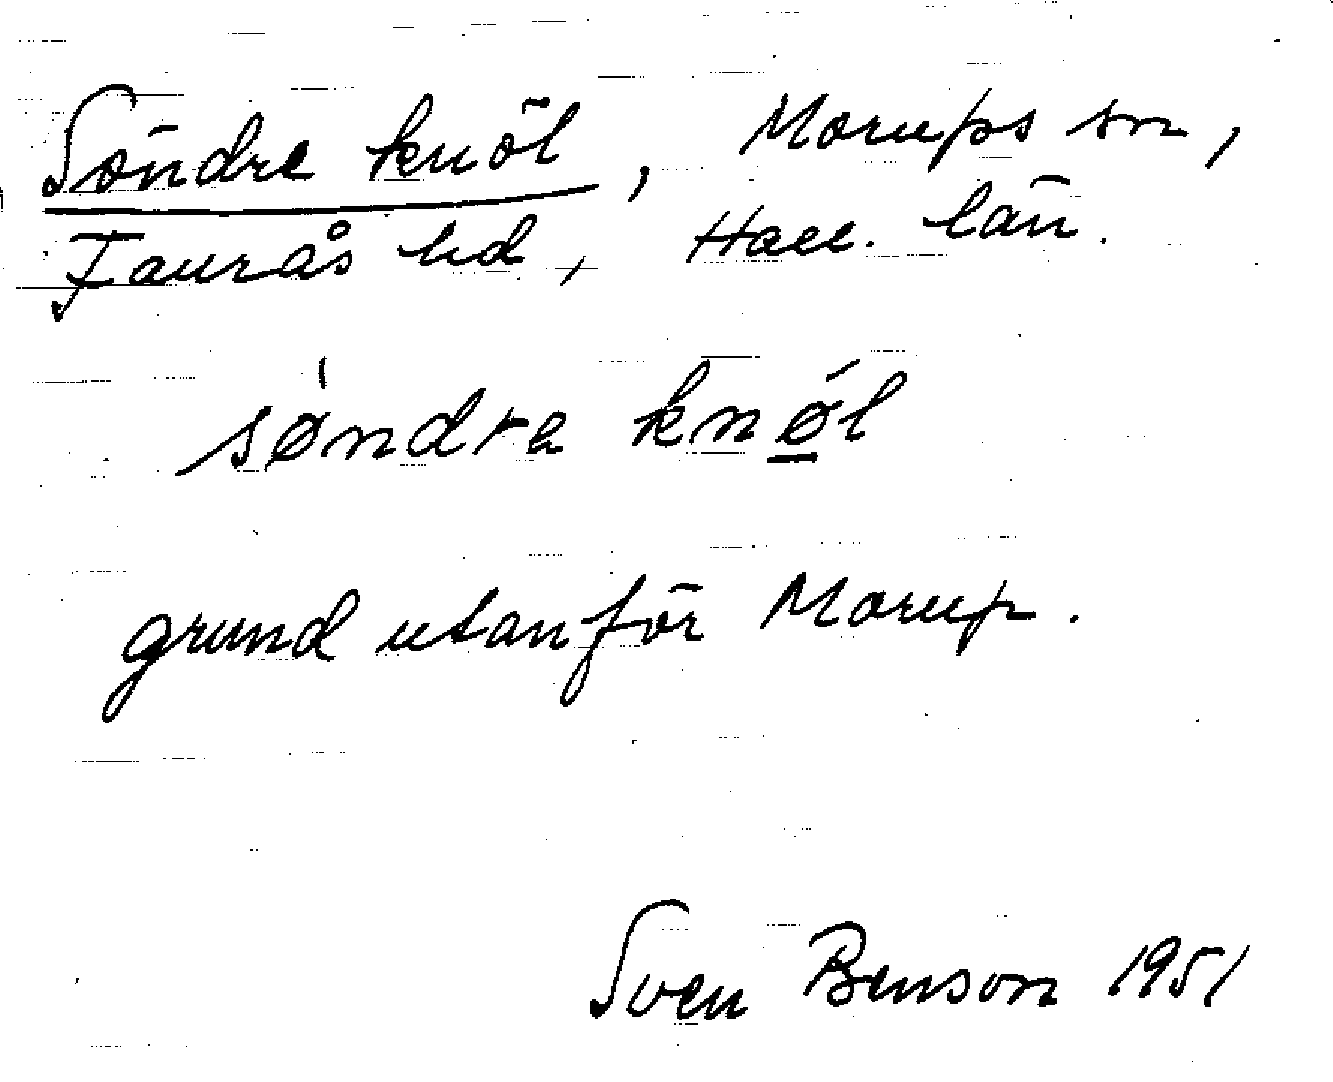 Söndre knöl, Morups sn,
Faurås hd, Hall. län.
söndre knøl
grund utanför Morup.
Sven Benson 1951